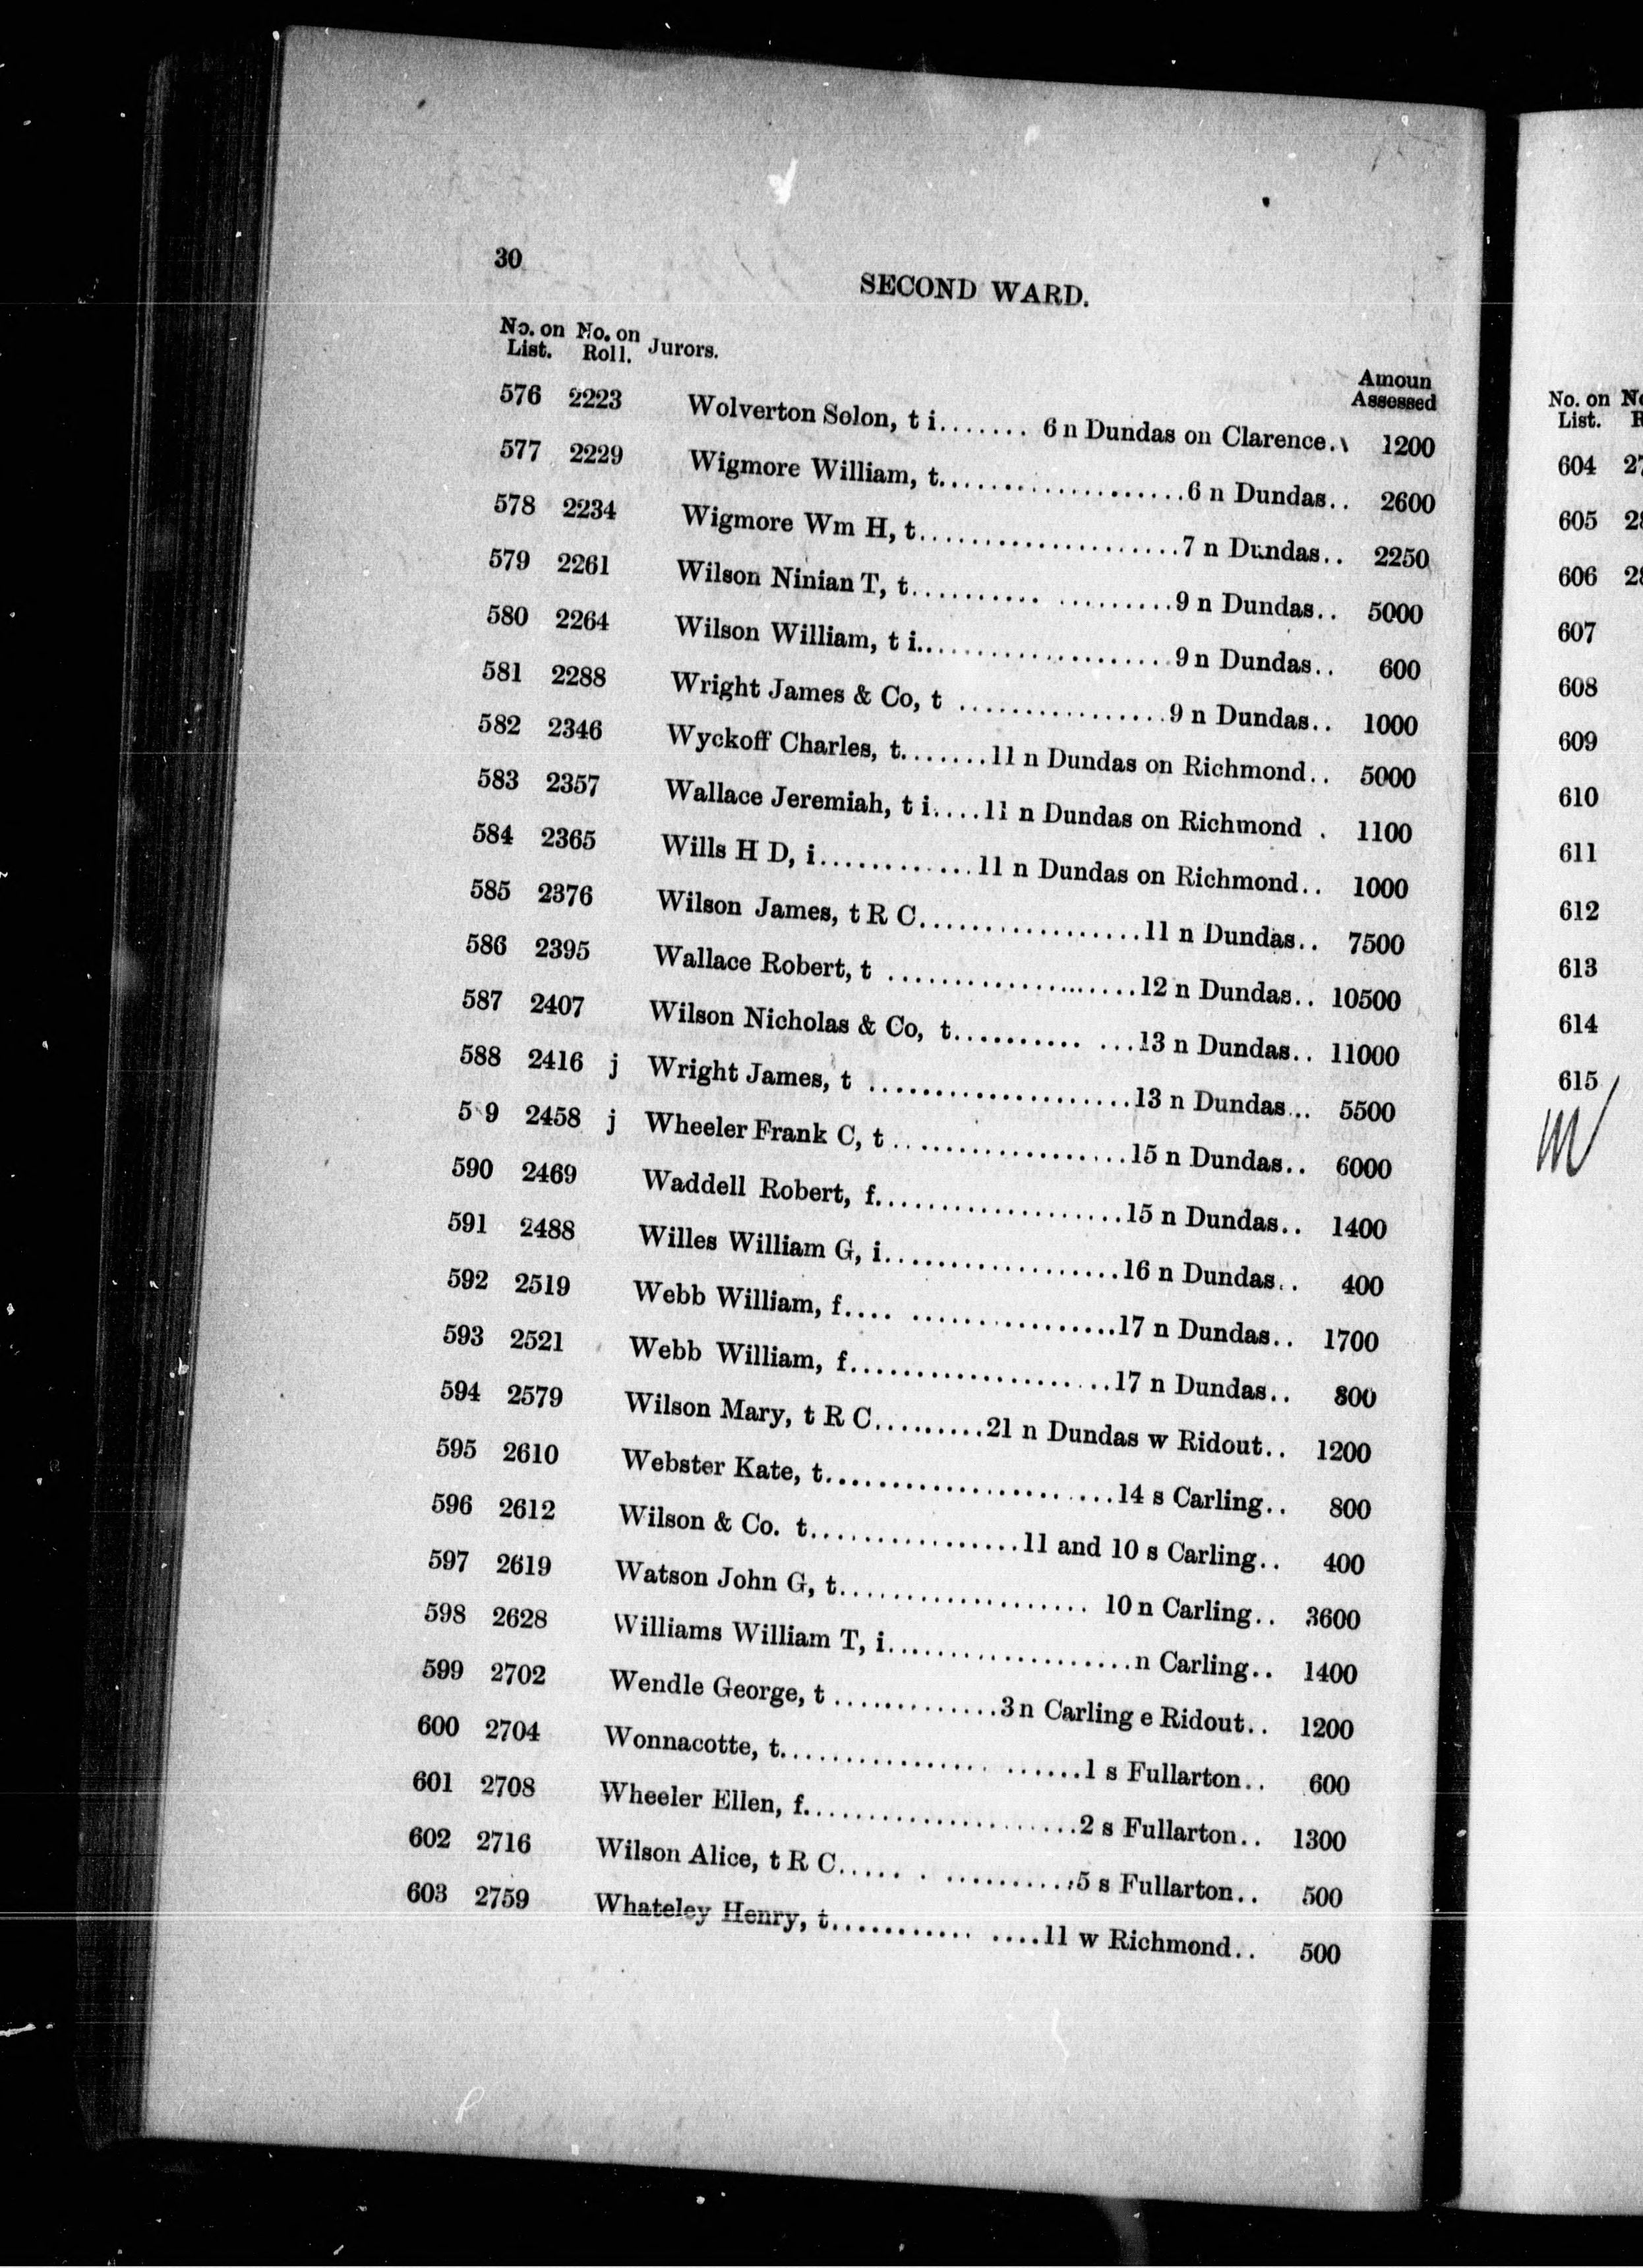 30
SECOND WARD.
No. on No. on Jurors. Amoun
List. Roll. Assessed
576 2223 Wolverton Solon, t i....... 6 n Dundas on Clarence. 1200
577 2229 Wigmore William, t...................6 n Dundas.. 2600
578 2234 Wigmore Wm H, t....................7 n Dundas.. 2250
579 2261 Wilson Ninian T, t.......... .........9 n Dundas.. 5000
580 2264 Wilson William, t i...................9 n Dundas.. 600
581 2288 Wright James & Co, t ................9 n Dundas.. 1000
582 2346 Wyckoff Charles, t.......11 n Dundas on Richmond.. 5000
583 2357 Wallace Jeremiah, t i....11 n Dundas on Richmond . 1100
584 2365 Wills H D, i............11 n Dundas on Richmond.. 1000
585 2376 Wilson James, t R C.................11 n Dundas.. 7500
586 2395 Wallace Robert, t ...................12 n Dundas.. 10500
587 2407 Wilson Nicholas & Co, t.......... ...13 n Dundas.. 11000
588 2416 j Wright James, t ....................13 n Dundas... 5500
5 9 2458 j Wheeler Frank C, t ..................15 n Dundas.. 6000
590 2469 Waddell Robert, f...................15 n Dundas.. 1400
591 2488 Willes William G, i..................16 n Dundas.. 400
592 2519 Webb William, f.... ................17 n Dundas.. 1700
593 2521 Webb William, f....................17 n Dundas.. 800
594 2579 Wilson Mary, t R C.........21 n Dundas w Ridout.. 1200
595 2610 Webster Kate, t......................14 s Carling.. 800
596 2612 Wilson & Co. t................11 and 10 s Carling.. 400
597 2619 Watson John G, t................... 10 n Carling.. 3600
598 2628 Williams William T, i...................n Carling.. 1400
599 2702 Wendle George, t .............3 n Carling e Ridout.. 1200
600 2704 Wonnacotte, t................ ......1 s Fullarton.. 600
601 2708 Wheeler Ellen, f.....................2 s Fullarton.. 1300
602 2716 Wilson Alice, t R C..... . ..........5 s Fullarton.. 500
603 2759 Whateley Henry, t........... ....11 w Richmond.. 500
No. on
List.
604
605
606
607
608
609
610
611
612
613
614
615